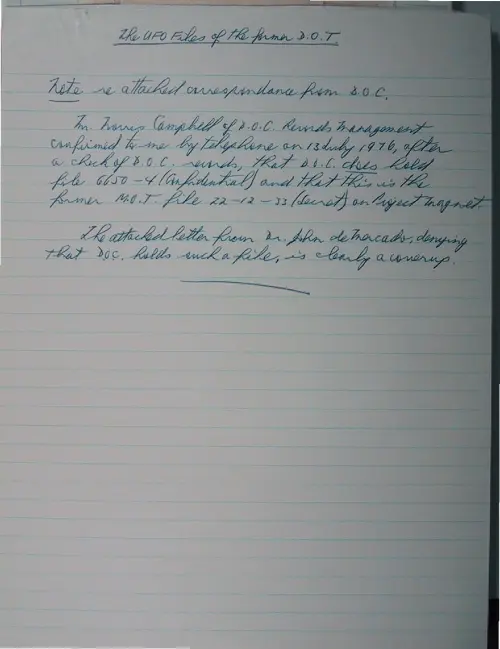 The UFO Files of the former D.O.T
Note re attached correspondance from D.O.C.
Mr. Campbell of D.O.C. Records Management
confirmed to me by telephone on 13 July 1976, after
a check of D.O.C. records, that D.O.C. does hold
file 6650-4 (Confidential) and that this is the
former M.O.T. file 22-12-33 (Secret) on Project Magnet.
The attached letter from Dr. John deMercado, denying
that DOC. holds such a file, is clearly a coverup.